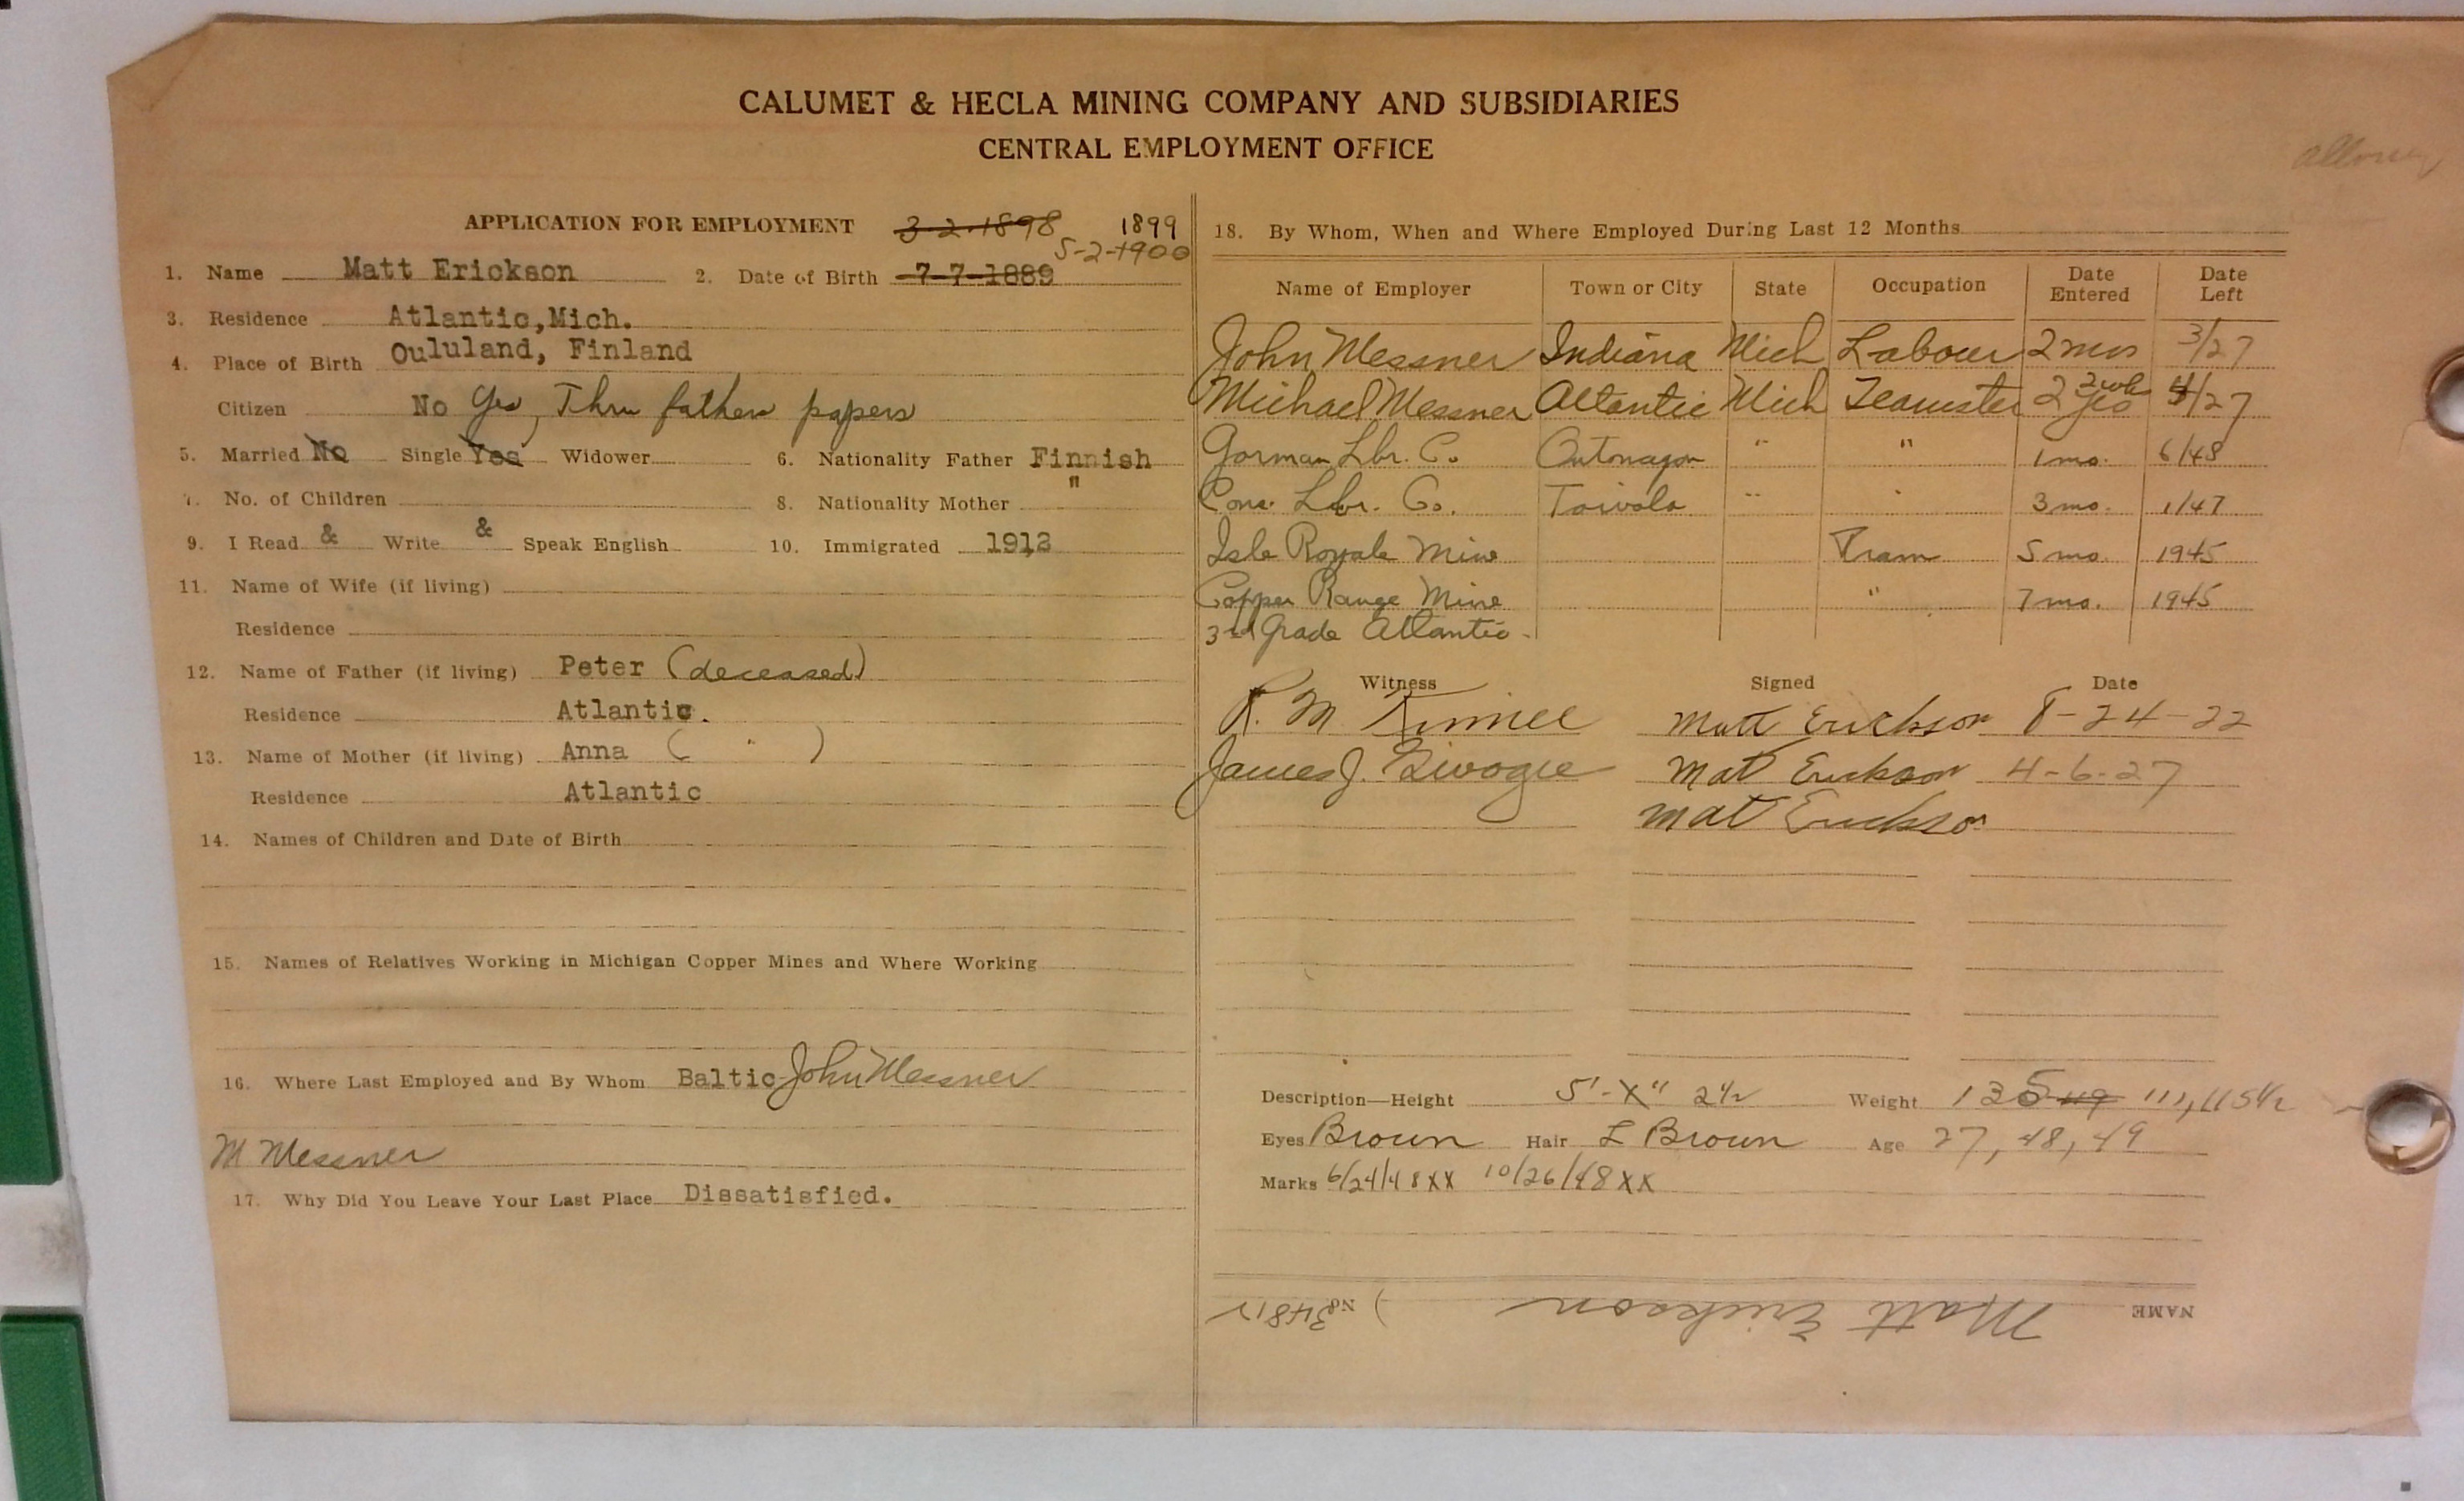 CALUMET & HECLA MINING COMPANY AND SUBSIDIARIES
CENTRAL EMPLOYMENT OFFICE
APPLICATION FOR EMPLOYMENT 3-2-1898 1899
5-2-1900
1. Name Matt Erickson 2. Date of Birth 7-7-1889
3. Residence Atlantic, Mich.
4. Place of Birth Oululand, Finland
Citizen No Yes, Thru fathers papers
5. Married No Single Yes Widower 6. Nationality Father Finnish
7. No. of Children 8. Nationality Mother "
9. I Read & Write & Speak English 10. Immigrated 1913
11. Name of Wife (if living)
Residence
12. Name of Father (if living) Peter (deceased)
Residence Atlantic.
13. Name of Mother (if living) Anna ( " )
Residence Atlantic
14. Names of Children and Date of Birth
15. Names of Relatives Working in Michigan Copper Mines and Where Working
16. Where Last Employed and By Whom Baltic-John Messner
M Messner
17. Why Did You Leave Your Last Place Dissatisfied.
18. By Whom, When and Where Employed During Last 12 Months
Name of Employer Town or City State Occupation Date Entered Date Left
John Messner Indiana Mich Labour 2 mos 3/27
Michael Messner Atlantic Mich Teamster 2 4/27
Gorman Lbr. Co. Ontonagon " " 1 mo. 6/48
Cons. Lbr. Co. Toivola " " 3 mo. 1/47
Isle Royale Mine Tram 5 mo. 1945
Copper Range Mine " 7 mo. 1945
3rd Grade Atlantic
Witness Signed Date
R. M. Matt Erickson 8-24-22
James J. Mat Erickson 4-6-27
Mat Erickson
Description—Height 5'-X" 2½ Weight 135 119 111, 115½
Eyes Brown Hair L Brown Age 27, 48, 49
Marks 6/24/48 XX 10/26/48 XX
NAME Matt Erickson No.